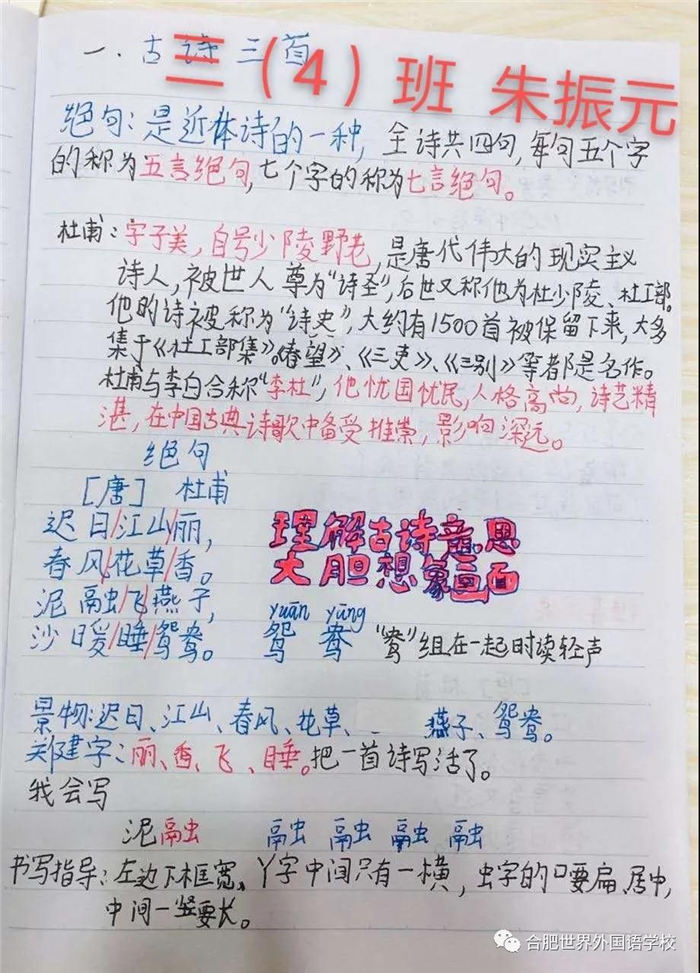 一、古诗三首
三（4）班 朱振元
绝句：是近体诗的一种，全诗共四句，每句五个字
的称为五言绝句，七个字的称为七言绝句。
杜甫：字子美，自号少陵野老，是唐代伟大的现实主义
诗人，被世人尊为“诗圣”，后世又称他为杜少陵、杜工部。
他的诗被称为“诗史”，大约有1500首被保留下来，大多
集于《杜工部集》。《春望》、《三吏》、《三别》等都是名作。
杜甫与李白合称“李杜”，他忧国忧民，人格高尚，诗艺精
湛，在中国古典诗歌中备受推崇，影响深远。
绝句
[唐] 杜甫
迟日/江山/丽，
春风/花草/香。
泥融/飞燕子，
沙暖/睡/鸳鸯。
理解古诗意思
大胆想象画面
yuān yāng
鸳 鸯 “鸯”组在一起时读轻声
景物：迟日、江山、春风、花草、 燕子、鸳鸯。
关键字：丽、香、飞、睡。把一首诗写活了。
我会写
泥融 融 融 融 融
书写指导：左边下框宽、丫字中间只有一横，虫字的口要扁、居中，
中间一竖要长。
合肥世界外国语学校